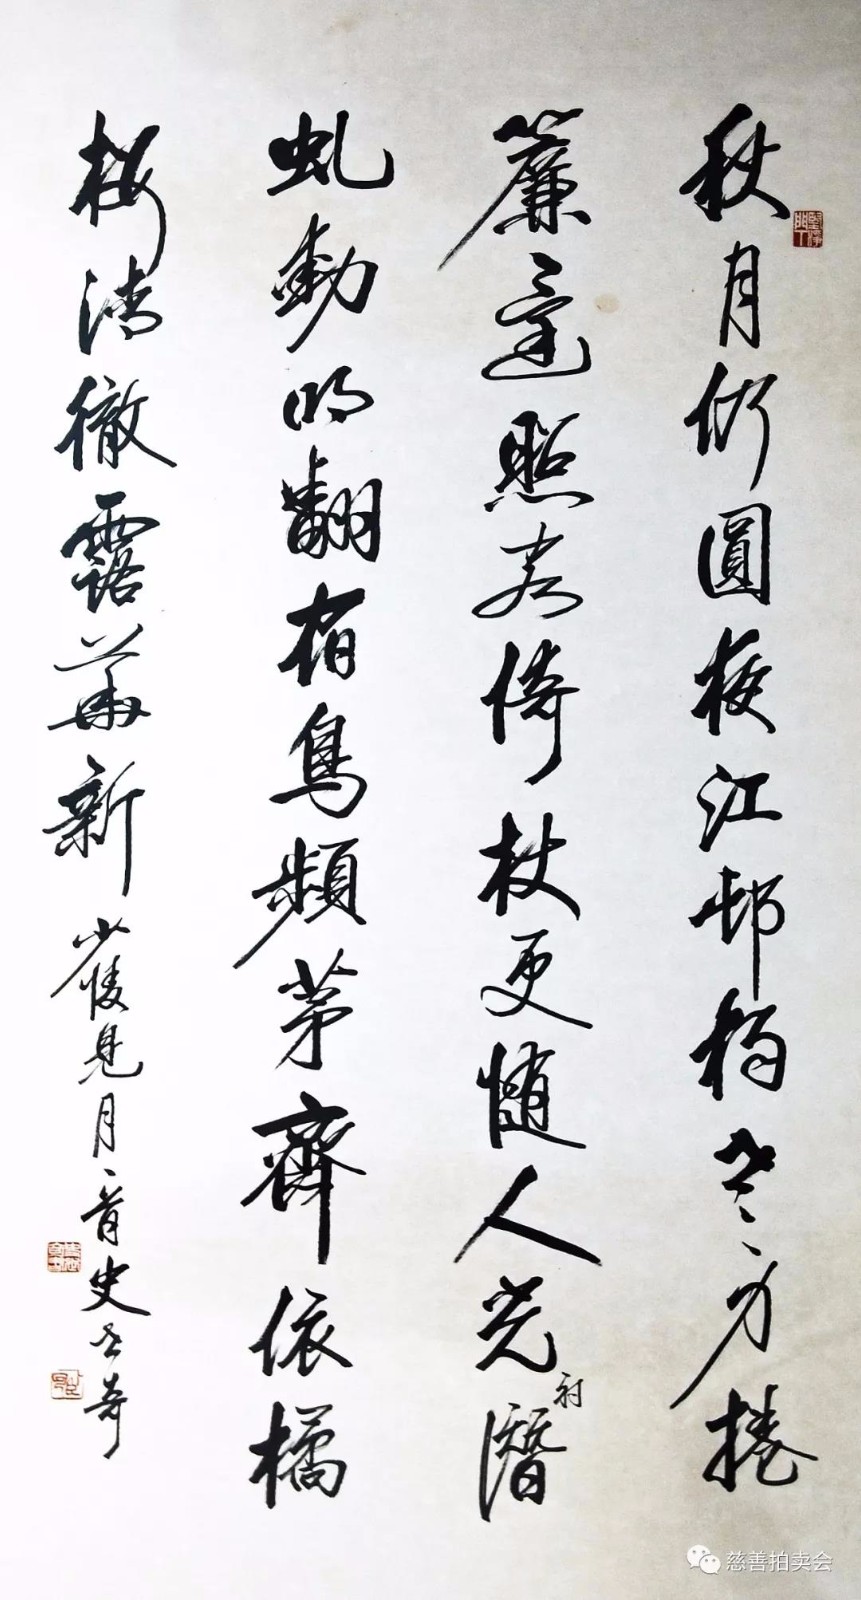 秋月仍圓夜江邨獨老身捲
簾還照客倚杖更隨人光射潛
虬動明翻宿鳥頻茅齊依橘
清徹露華新 少陵見月一首 史奇
慈善拍卖会